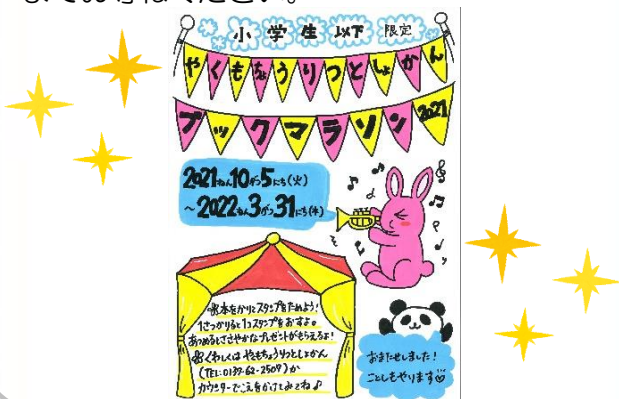 までお尋ねください。
小学生以下限定
やくもちょうりつとしょかん
ブックマラソン2021
2021ねん10がつ5にち(火)
～2022ねん3がつ31にち(木)
本をかりてスタンプをためよう!
1さつかりると1コスタンプをおすよ。
あつめるとささやかなプレゼントがもらえるよ!
くわしくはやくもちょうりつとしょかん
(TEL:0137-62-2507)か
カウンターでこえをかけてみてね♪
おまたせしました!
ことしもやります